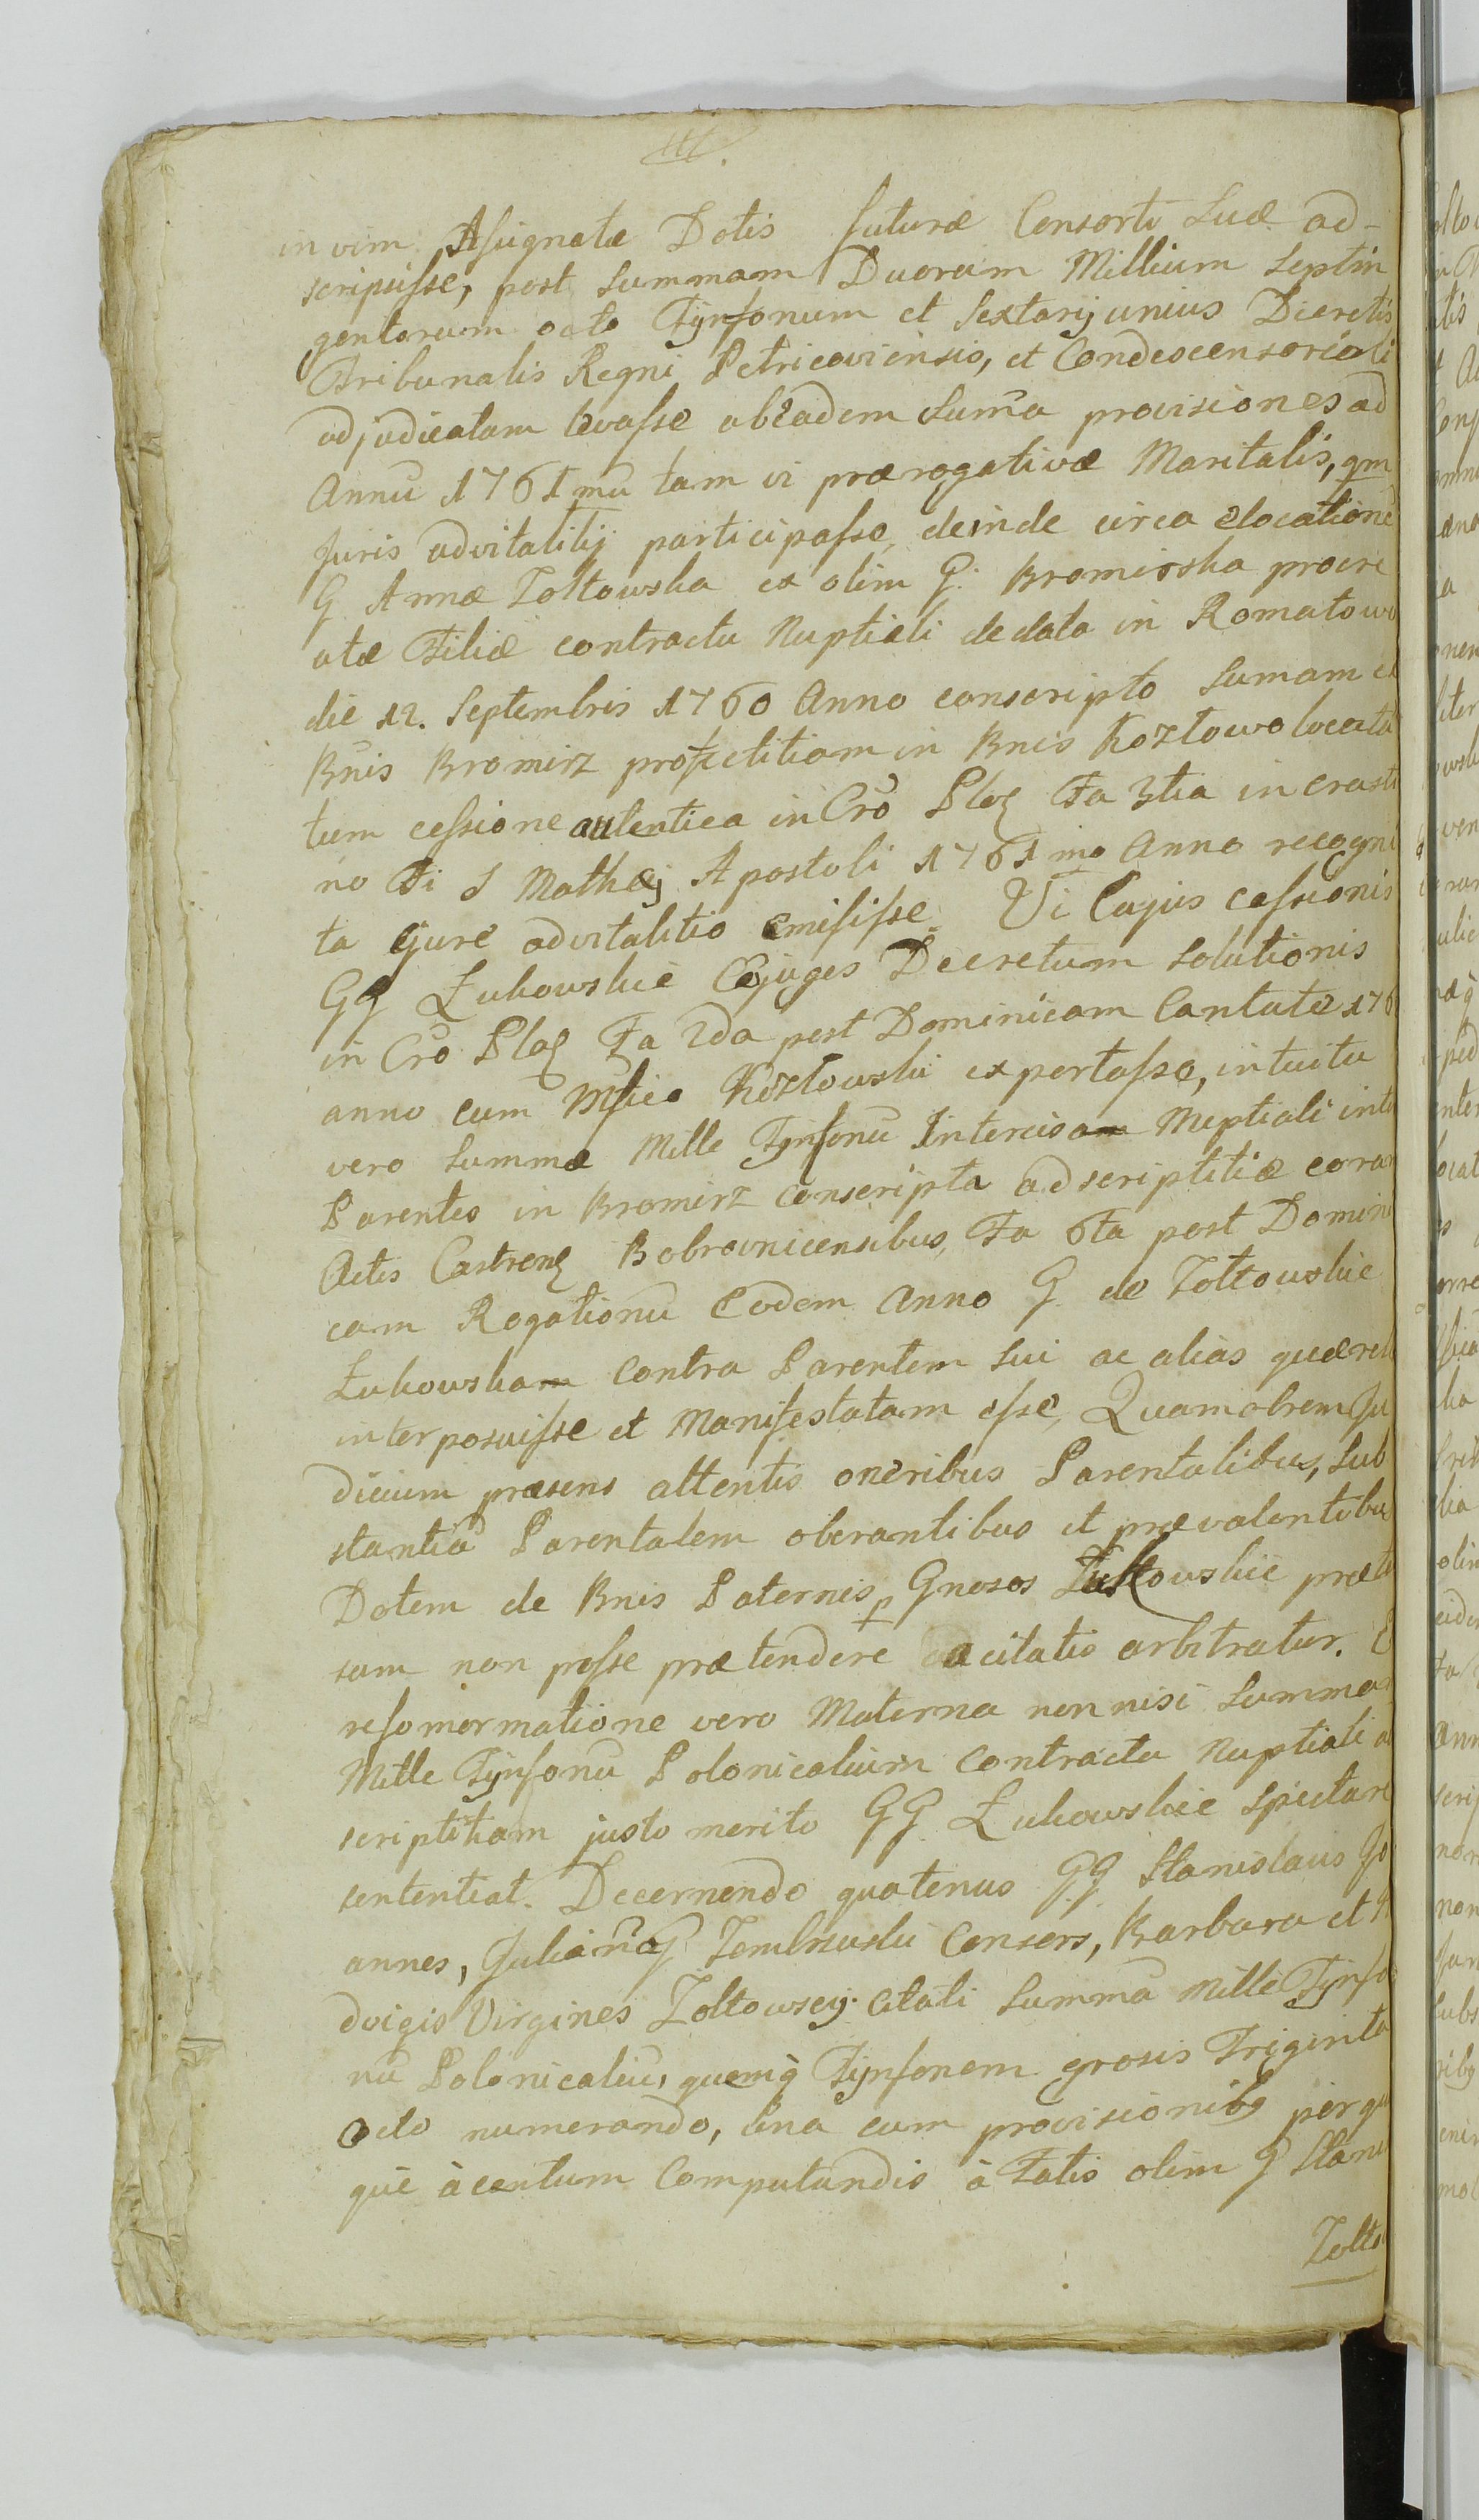 in vim Assignatæ Dotis futuræ Consorti Suæ ad-
scripsisse, post Summam Duorum Millium Septin
gentorum octo Tynfonum et Sextarij unius Decretis
Tribunalis Regni Petricoviensis, et Condescensoriali
adjudicatam levasse ab eadem Suma provisiones ad
Annū 1761mū tam vi prærogativæ Maritalis, qm
Juris advitalitij participasse, deinde circa elocationē
G Annæ Zołtowska ex olim G. Bromirska procre
atæ Filiæ contractu Nuptiali de data in Romatowo
die 12. Septembris 1760 Anno conscripto Sumam et
Bnis Bromirz profectitiam in Bnis Kozłowo locata
tum cessione autentica in Cro Ploc Fa 3tia in crasti
no Fi S Mathæj Apostoli 1761mo Anno recogni
ta ejure advitalitio emisisse. Vi Cujus cessionis
GG Łukowskie Cojuges Decretum Solutionis
in Crō Ploc Fa 2da post Dominicam Cantate 176
anno cum Mfico Kozłowski exportasse, intuitu
vero Summæ Mille Tynfonū Intercisa Nuptiali inte
Parentes in Bromirz conscripta adscriptitiæ coram
Actis Castren Bobrovnicensibus, Fa 6ta post Domini
cam Rogationū Eodem Anno G. de Zołtowskie
Łukowska contra Parentem Sui ac alias quærel
interposuisse et Manifestatam esse, Quamobrem Ju
dicium præsens attentis oneribus Parentalibus, Sub
stantiā Parentalem oberantibus et prævalentibus
Dotem de Bnis Paternis p Gnosos Łukowskie præte
sam non posse prætendere citatis arbitratur. E
reformatione vero Materna non nisi Summa
Mille Tynfonū Polonicalium Contractu Nuptiali a
scriptitiam justo merito GG Łukowskie Spectare
sententiat. Decernendo quatenus GG Stanislaus Jo
annes, Julianna Consors, Barbara et H
dvigis Virgines Zołtowscy citati Summā Mille Tynfo
nū Polonicaliū, quemq Tynfonem grosis Triginta
Octo numerando, una cum provisionibq per qu
que à centum Computandis à Fatis olim G Stani
Zołto